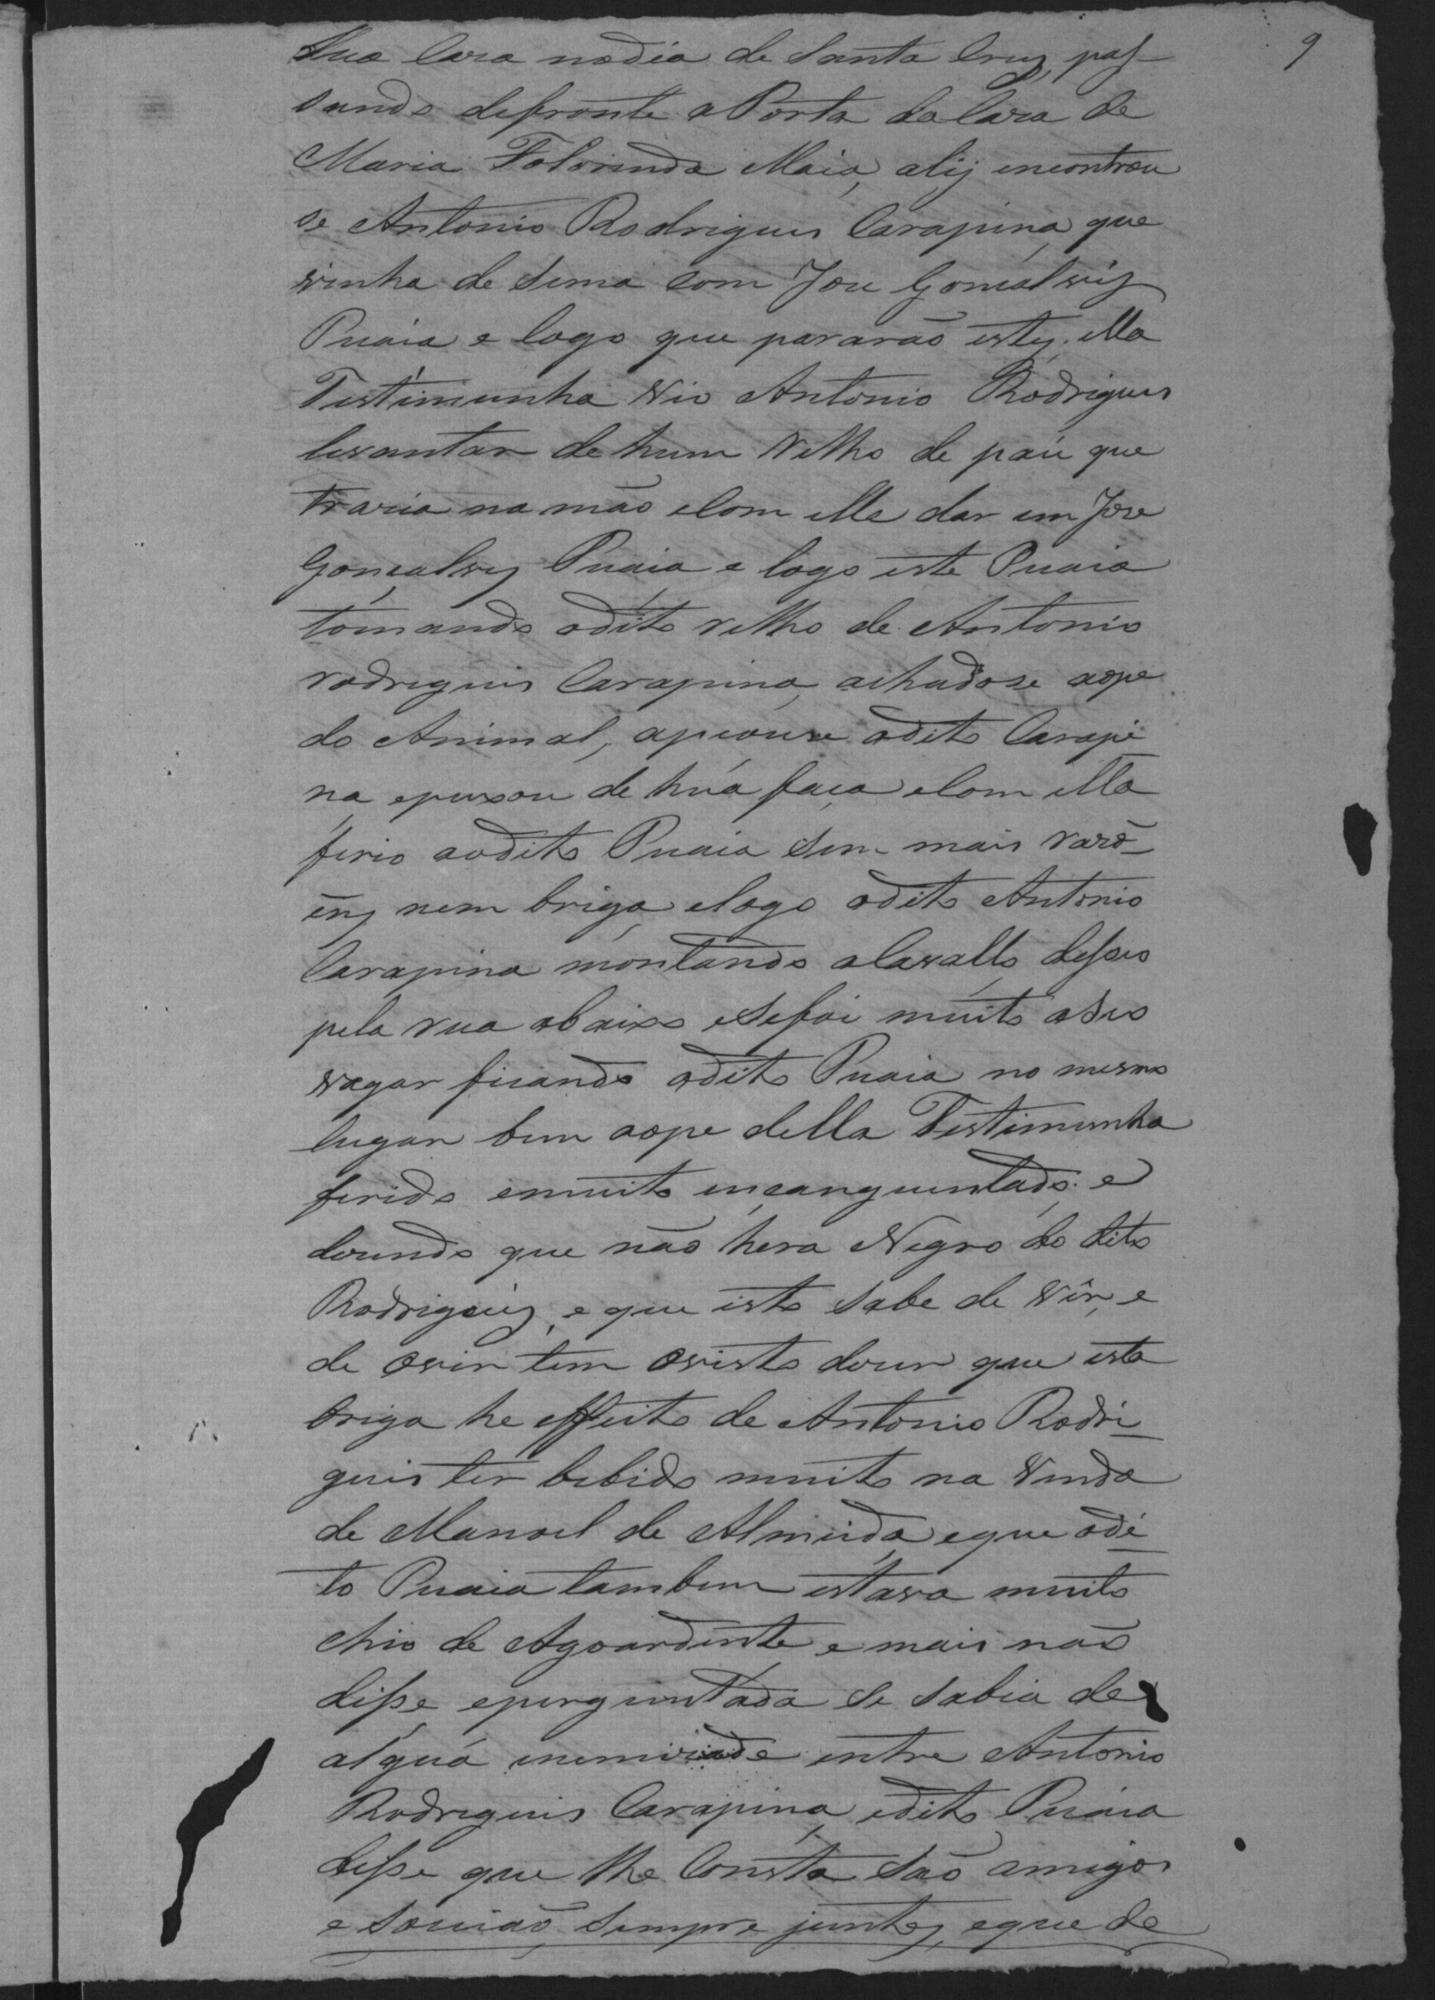 9
Sua Caza nodia de Santa Cruz, pas-
sando defronte a Porta da Caza de
Maria Folorinda Maia, alij encontrou
se Antonio Rodrigues Carapina que
vinha de sima com Joze Gonsalvez
Puaia e logo que pararão estez. ella
Testimunha vio Antonio Rodrigues
levantar de hum relho de páu que
trazia na mão e Com elle dar em Joze
Gonçalvez Puaia e logo este Puaia
tomando odito relho de Antonio
rodriguis Carapina, achadose aope
do Animal, apeouse odito Carapi
na, epuxou de hũa faca eCom ella
ferio aodito Puaia sem mais razõ-
ens nem briga, elogo odito Antonio
Carapina montando aCavallo desseo
pela rua abaixo esefoi muito aseo
vagar ficando odito Puaia no mesmo
lugar bem aope della Testimunha
ferido emuito ençanguentado. e
dizendo que não hera Negro do dito
Rodriguez, e que isto sabe de vêr, e
de ovir tem ovisto dizer que esta
briga he effeito de Antonio Rodri-
guis ter bebido muito na Venda
de Manoel de Almeida, eque odi-
to Puaia tambem estava muito
cheio de Agoardente, e mais não
disse eperguntada se sabia de
algũa inemizade entre Antonio
Rodriguis Carapina, edito Puaia
disse que lhe Consta são amigos
e sempre juntoz, eque de